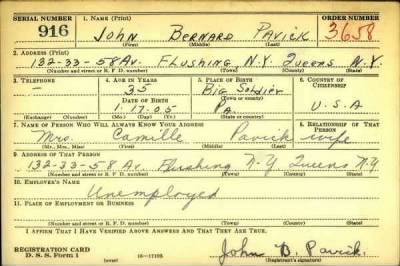 SERIAL NUMBER 1. NAME (Print) ORDER NUMBER
916 JOHN BERNARD PAVICK 3658
(First) (Middle) (Last)
2. ADDRESS (Print)
132-33-58 AV. FLUSHING N.Y. QUEENS N.Y.
(Number and street or R. F. D. number) (Town) (County) (State)
3. TELEPHONE 4. AGE IN YEARS 5. PLACE OF BIRTH 6. COUNTRY OF CITIZENSHIP
— 35 BIG SOLDIER
DATE OF BIRTH (Town or county)
1. 17. 05 PA. U.S.A
(Exchange) (Number) (Mo.) (Day) (Yr.) (State or country)
7. NAME OF PERSON WHO WILL ALWAYS KNOW YOUR ADDRESS 8. RELATIONSHIP OF THAT PERSON
Mrs. Camille Pavick wife
(Mr., Mrs., Miss) (First) (Middle) (Last)
9. ADDRESS OF THAT PERSON
132-33-58 Av. Flushing N-Y Queens N.Y.
(Number and street or R. F. D. number) (Town) (County) (State)
10. EMPLOYER'S NAME
Unemployed
11. PLACE OF EMPLOYMENT OR BUSINESS
(Number and street or R. F. D. number) (Town) (County) (State)
I AFFIRM THAT I HAVE VERIFIED ABOVE ANSWERS AND THAT THEY ARE TRUE.
REGISTRATION CARD John B. Pavick
D. S. S. Form 1 (over) 16—17105 (Registrant's signature)